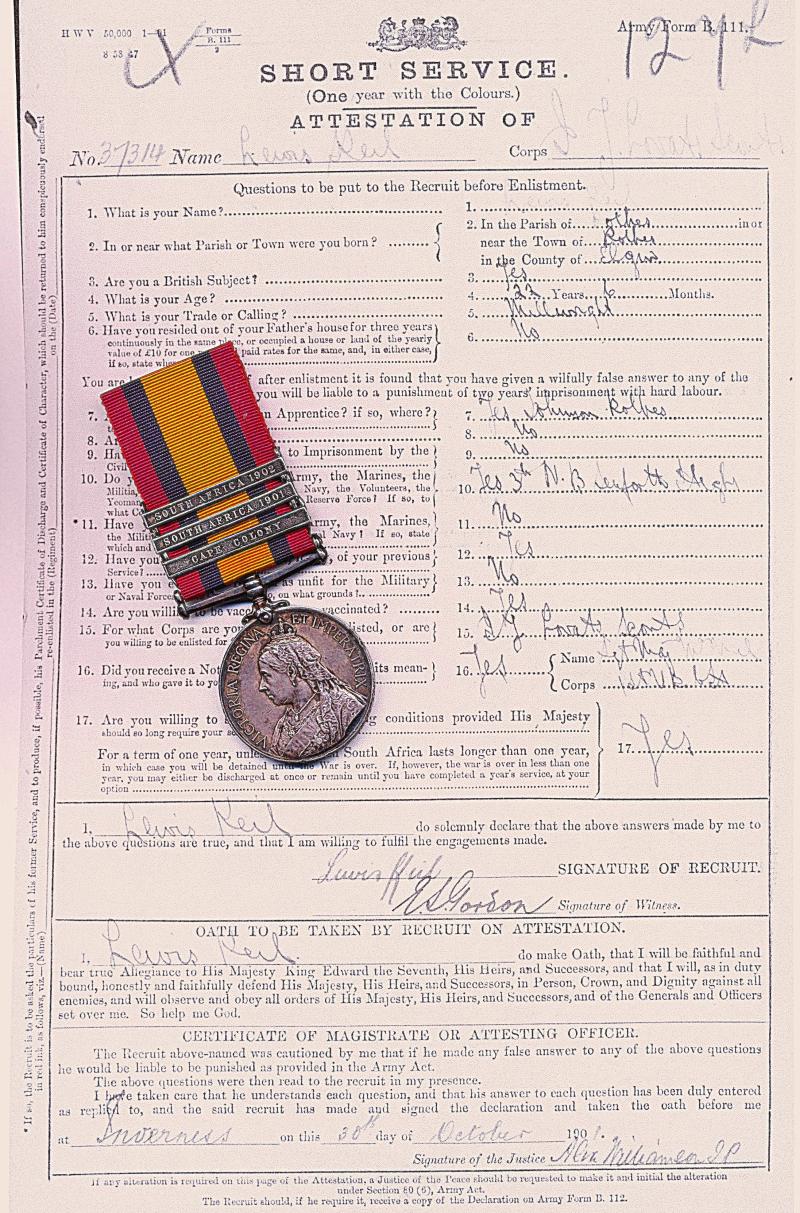 H W V 50,000 1—01
8 53 47
Forms
B. 111
2
Army Form B. 111.
1272
SHORT SERVICE.
(One year with the Colours.)
ATTESTATION OF
No. 37314 Name Lewis Keil Corps Lovats Scouts
Questions to be put to the Recruit before Enlistment.
1. What is your Name? 1.
2. In or near what Parish or Town were you born? 2. In the Parish of Rothes in or
near the Town of Rothes
in the County of Elgin
3. Are you a British Subject? 3. Yes
4. What is your Age? 4. 22 Years 6 Months.
5. What is your Trade or Calling? 5. Millwright
6. Have you resided out of your Father's house for three years 6. No
continuously in the same place, or occupied a house or land of the yearly
value of £10 for one paid rates for the same, and, in either case,
if so, state
You are after enlistment it is found that you have given a wilfully false answer to any of the
you will be liable to a punishment of two years' imprisonment with hard labour.
7. an Apprentice? if so, where? 7. Yes Rothes
8. 8. No
9. to Imprisonment by the 9. No
Civil
10. Do Army, the Marines, the 10. Yes 3rd V. B Seaforth High
Militia, Navy, the Volunteers, the
Yeomanry Reserve Force? If so, to
what
*11. Have Army, the Marines, 11. No
the Militia Navy? If so, state
which and
12. Have you of your previous 12. Yes
Service?
13. Have you as unfit for the Military 13. No
or Naval Forces on what grounds?
14. Are you willing to be vaccinated? 14. Yes
15. For what Corps are you enlisted, or are 15. Lovats Scouts
you willing to be enlisted for
16. Did you receive a Notice its mean- 16. Yes Name Sgt Maj
ing, and who gave it to you Corps 1st V B
17. Are you willing to conditions provided His Majesty 17. Yes
should so long require your
For a term of one year, unless South Africa lasts longer than one year,
in which case you will be detained until the War is over. If, however, the war is over in less than one
year, you may either be discharged at once or remain until you have completed a year's service, at your
option
SOUTH AFRICA 1902
SOUTH AFRICA 1901
CAPE COLONY
VICTORIA REGINA ET IMPERATRIX
I, Lewis Keil do solemnly declare that the above answers made by me to
the above questions are true, and that I am willing to fulfil the engagements made.
Lewis Keil SIGNATURE OF RECRUIT.
Gordon Signature of Witness.
OATH TO BE TAKEN BY RECRUIT ON ATTESTATION.
I, Lewis Keil do make Oath, that I will be faithful and
bear true Allegiance to His Majesty King Edward the Seventh, His Heirs, and Successors, and that I will, as in duty
bound, honestly and faithfully defend His Majesty, His Heirs, and Successors, in Person, Crown, and Dignity against all
enemies, and will observe and obey all orders of His Majesty, His Heirs, and Successors, and of the Generals and Officers
set over me. So help me God.
CERTIFICATE OF MAGISTRATE OR ATTESTING OFFICER.
The Recruit above-named was cautioned by me that if he made any false answer to any of the above questions
he would be liable to be punished as provided in the Army Act.
The above questions were then read to the recruit in my presence.
I have taken care that he understands each question, and that his answer to each question has been duly entered
as replied to, and the said recruit has made and signed the declaration and taken the oath before me
at Inverness on this 30th day of October 1901.
Signature of the Justice Alex Williamson J P
If any alteration is required on this page of the Attestation, a Justice of the Peace should be requested to make it and initial the alteration
under Section 80 (6), Army Act.
The Recruit should, if he require it, receive a copy of the Declaration on Army Form B. 112.
* If so, the Recruit is to be asked the particulars of his former Service, and to produce, if possible, his Parchment Certificate of Discharge and Certificate of Character, which should be returned to him conspicuously endorsed
in red ink, as follows, viz.—(Name) re-enlisted in the (Regiment) on the (Date)